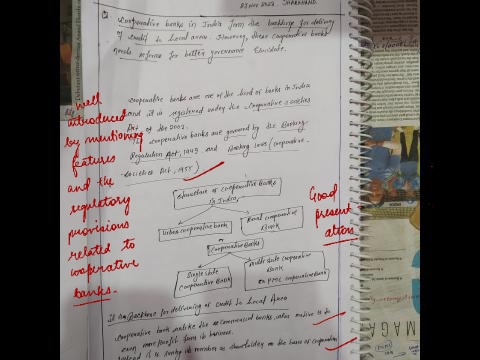 23 Nov 2022, JHARKHAND.
Q Cooperative banks in India form the backbone for delivery
of credit to Local areas. However, these cooperative banks
needs reforms for better governance Elucidate.
Cooperative banks are one of the kind of banks in India
and it is registered under the Cooperative societies
Act of the 2002.
The cooperative banks are governed by the Banking
Regulation Act, 1949 and Banking laws (cooperative
societies Act, 1955)
Well
introduced
by mentioning
features
and the
regulatory
provisions
related to
cooperative
banks.
Structure of Cooperative Banks
in India
Urban cooperative bank
Rural cooperative
Bank
Cooperative Banks
Single state
Cooperative Bank
Multi state cooperative
Bank
ex PMC cooperative Bank
Good
present
ation
It is Backbone for delivering of credit to Local Area
Cooperative bank unlike the commercial banks, whose motive is to
earn more profit from its business.
instead it is its member as shareholders on the basis of cooperation
MAGA